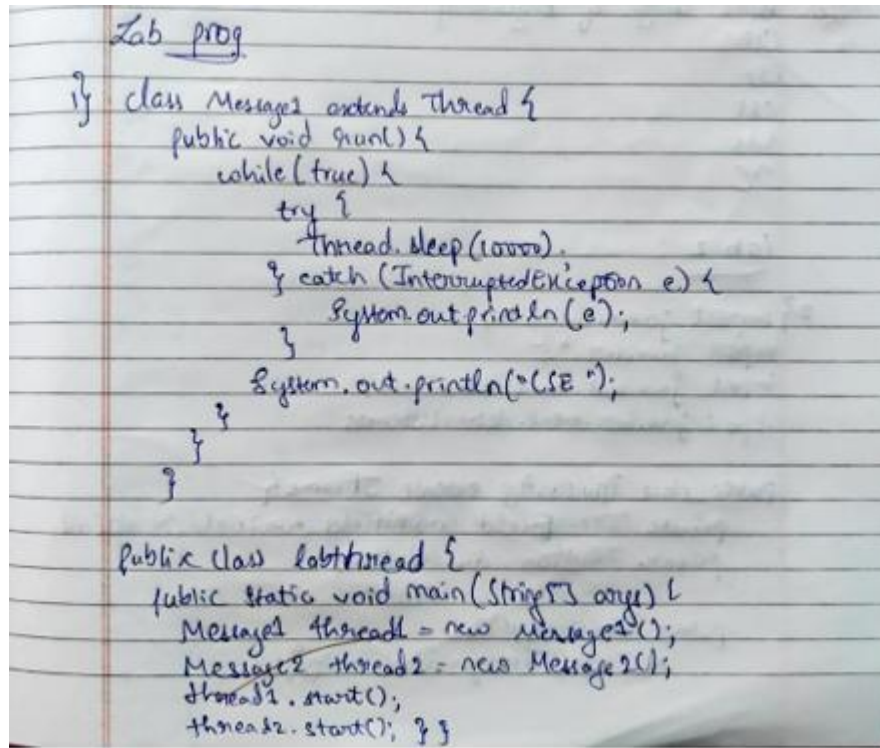 Lab prog
1} class Message1 extends Thread {
public void run() {
while (true) {
try {
Thread.sleep(10000).
} catch (InterruptedException e) {
System.out.println(e);
}
System.out.println("CSE ");
}
}
}
public class labthread {
public static void main(String[] args) {
Message1 thread1 = new Message1();
Message2 thread2 = new Message2();
thread1.start();
thread2.start(); } }